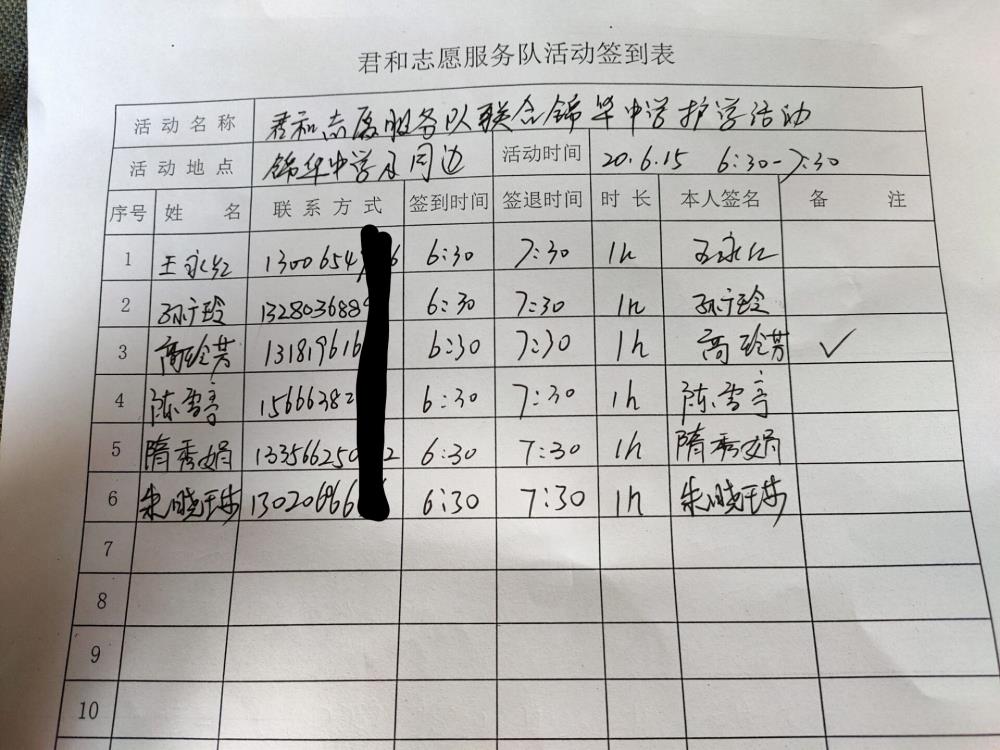 君和志愿服务队活动签到表
活动名称 君和志愿服务队联合锦华中学护学活动
活动地点 锦华中学及周边 活动时间 20.6.15 6:30-7:30
序号 姓名 联系方式 签到时间 签退时间 时长 本人签名 备注
1 王永红 1300654 6 6:30 7:30 1h 王永红
2 孙广玲 1328036889 6:30 7:30 1h 孙广玲
3 高玲芳 131819616 6:30 7:30 1h 高玲芳 ✓
4 陈雪亭 15666382 6:30 7:30 1h 陈雪亭
5 隋秀娟 133566250 2 6:30 7:30 1h 隋秀娟
6 朱晓玮 13020696 6:30 7:30 1h 朱晓玮
7
8
9
10